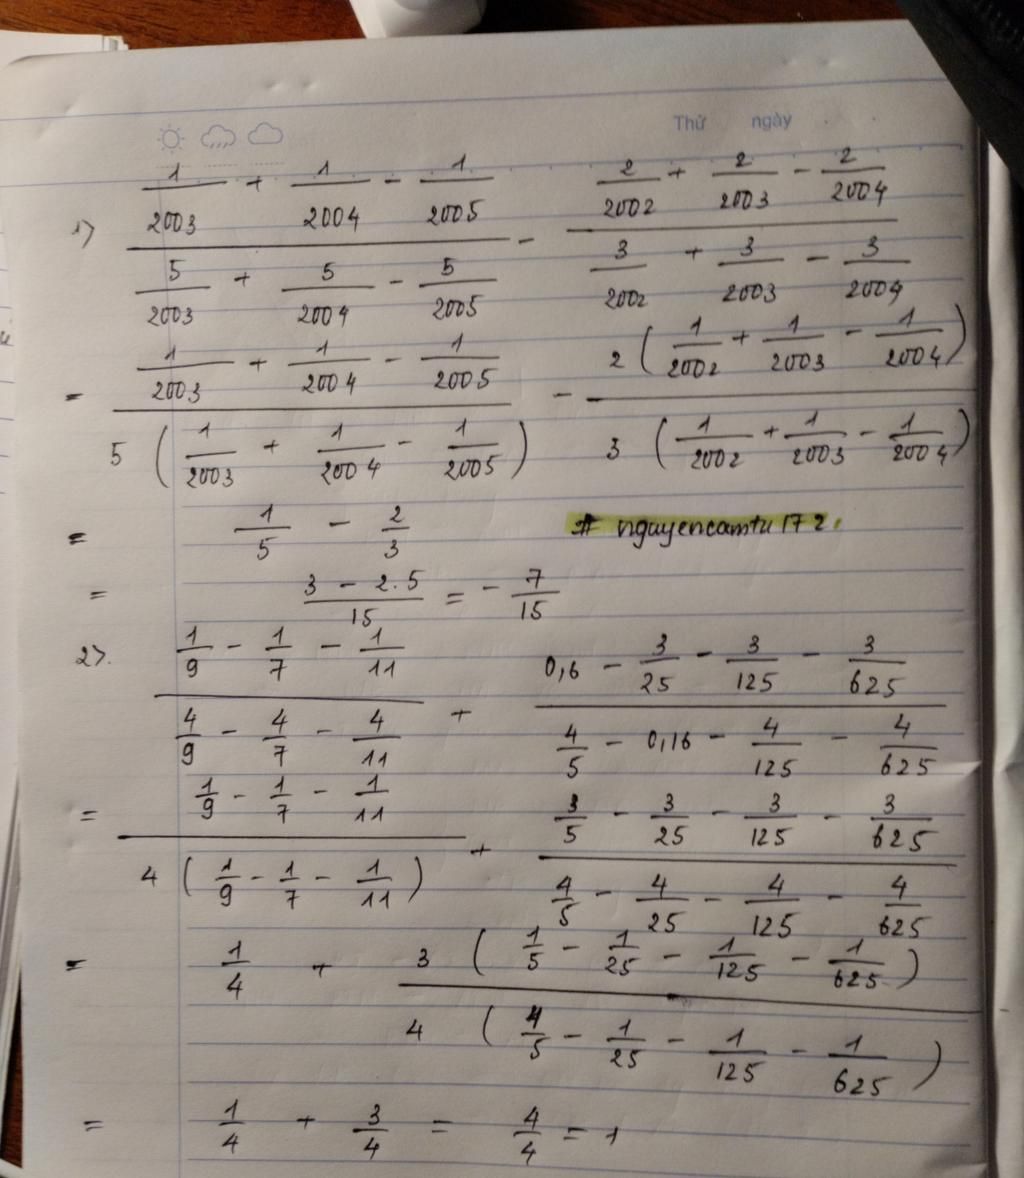 Thứ ngày
1) \frac{\frac{1}{2003} + \frac{1}{2004} - \frac{1}{2005}}{\frac{5}{2003} + \frac{5}{2004} - \frac{5}{2005}} - \frac{\frac{2}{2002} + \frac{2}{2003} - \frac{2}{2004}}{\frac{3}{2002} + \frac{3}{2003} - \frac{3}{2004}}
= \frac{\frac{1}{2003} + \frac{1}{2004} - \frac{1}{2005}}{5 (\frac{1}{2003} + \frac{1}{2004} - \frac{1}{2005})} - \frac{2 (\frac{1}{2002} + \frac{1}{2003} - \frac{1}{2004})}{3 (\frac{1}{2002} + \frac{1}{2003} - \frac{1}{2004})}
= \frac{1}{5} - \frac{2}{3} # nguyencamtu172.
= \frac{3 - 2.5}{15} = - \frac{7}{15}
2). \frac{\frac{1}{9} - \frac{1}{7} - \frac{1}{11}}{\frac{4}{9} - \frac{4}{7} - \frac{4}{11}} + \frac{0,6 - \frac{3}{25} - \frac{3}{125} - \frac{3}{625}}{\frac{4}{5} - 0,16 - \frac{4}{125} - \frac{4}{625}}
= \frac{\frac{1}{9} - \frac{1}{7} - \frac{1}{11}}{4 (\frac{1}{9} - \frac{1}{7} - \frac{1}{11})} + \frac{\frac{3}{5} - \frac{3}{25} - \frac{3}{125} - \frac{3}{625}}{\frac{4}{5} - \frac{4}{25} - \frac{4}{125} - \frac{4}{625}}
= \frac{1}{4} + \frac{3 (\frac{1}{5} - \frac{1}{25} - \frac{1}{125} - \frac{1}{625})}{4 (\frac{4}{5} - \frac{1}{25} - \frac{1}{125} - \frac{1}{625})}
= \frac{1}{4} + \frac{3}{4} = \frac{4}{4} = 1